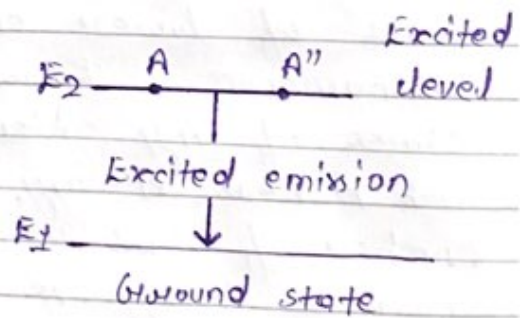 Excited
A A"
E2 level
Excited emission
E1
Ground state